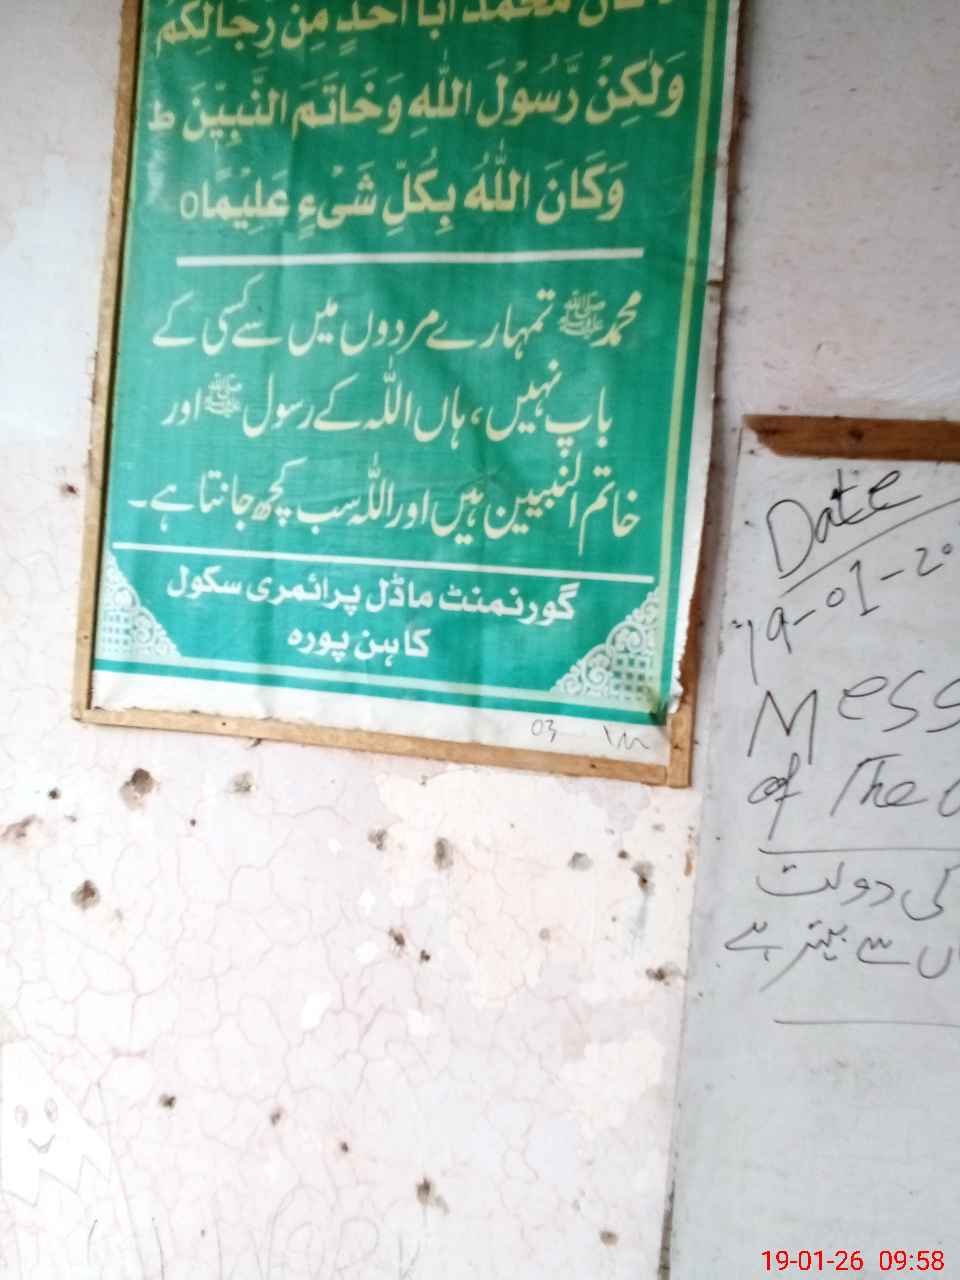 محمد ابا احد من رجالكم
وَلٰكِنْ رَّسُوْلَ اللّٰهِ وَخَاتَمَ النَّبِيّٖنَ ط
وَكَانَ اللّٰهُ بِكُلِّ شَىْءٍ عَلِيْمًا o
محمد ﷺ تمہارے مردوں میں سے کسی کے
باپ نہیں، ہاں اللہ کے رسول ﷺ اور
خاتم النبیین ہیں اور اللہ سب کچھ جانتا ہے۔
گورنمنٹ ماڈل پرائمری سکول
کاہن پورہ
03
Date
19-01-20
Mess
of The
کی دولت
سے بہتر ہے
19-01-26 09:58